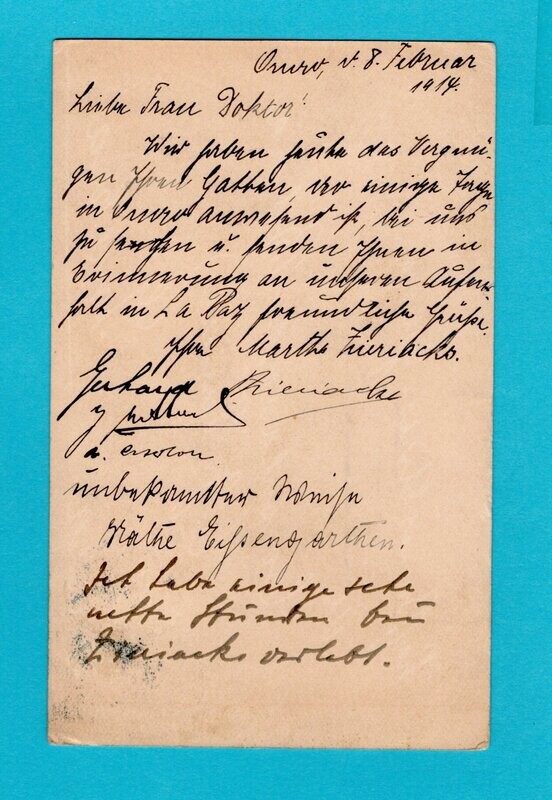 Oruro, d. 8. Februar
1914.
Liebe Frau Doktor!
Wir haben heute das Vergnü-
gen Ihren Gatten, der einige Tage
in Oruro anwesend ist, bei uns
zu sehen u. senden Ihnen in
Erinnerung an unseren Aufent-
halt in La Paz freundliche Grüße.
Ihre Martha Zieriacks.
Gerhard Zieriacks
unbekannter Weise
Käthe Eissengarthen.
Ich habe einige sehr
nette Stunden bei
Zieriacks verlebt.